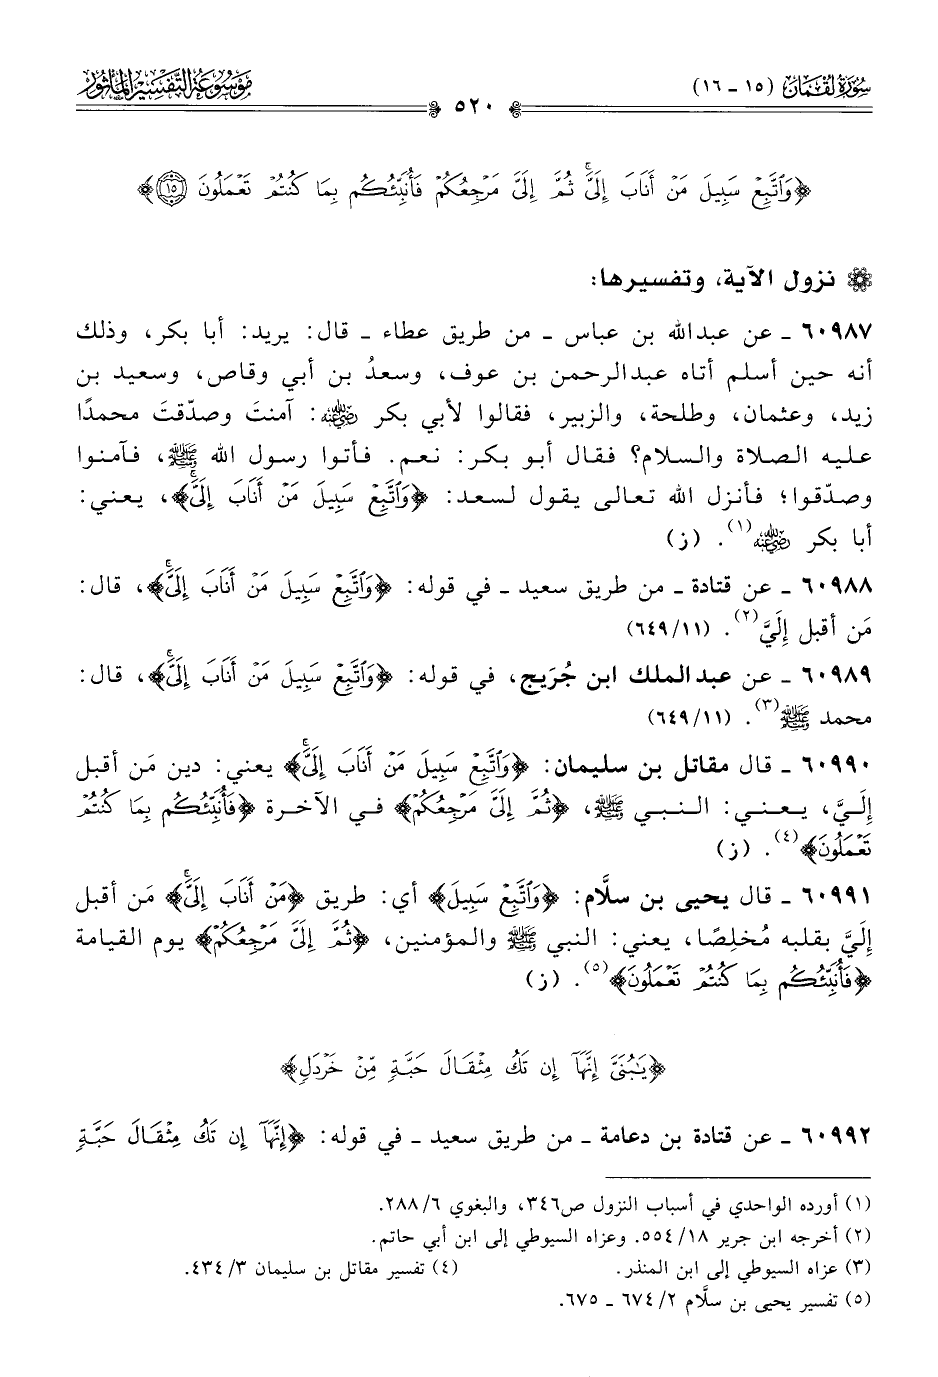 سُورَةُ لُقْمَان (١٥ - ١٦)
٥٢٠
مَوْسُوعَةُ التَّفْسِيرِ المَأْثُورِ
﴿وَٱتَّبِعْ سَبِيلَ مَنْ أَنَابَ إِلَىَّۚ ثُمَّ إِلَىَّ مَرْجِعُكُمْ فَأُنَبِّئُكُم بِمَا كُنتُمْ تَعْمَلُونَ ١٥﴾
نزول الآية، وتفسيرها:
٦٠٩٨٧ ـ عن عبدالله بن عباس ـ من طريق عطاء ـ قال: يريد: أبا بكر، وذلك
أنه حين أسلم أتاه عبدالرحمن بن عوف، وسعدُ بن أبي وقاص، وسعيد بن
زيد، وعثمان، وطلحة، والزبير، فقالوا لأبي بكر رضي الله عنه: آمنتَ وصدّقتَ محمدًا
عليه الصلاة والسلام؟ فقال أبو بكر: نعم. فأتوا رسول الله ﷺ، فآمنوا
وصدّقوا؛ فأنزل الله تعالى يقول لسعد: ﴿وَٱتَّبِعْ سَبِيلَ مَنْ أَنَابَ إِلَىَّۚ﴾، يعني:
أبا بكر رضي الله عنه(١). (ز)
٦٠٩٨٨ ـ عن قتادة ـ من طريق سعيد ـ في قوله: ﴿وَٱتَّبِعْ سَبِيلَ مَنْ أَنَابَ إِلَىَّۚ﴾، قال:
مَن أقبل إِلَيَّ(٢). (٦٤٩/١١)
٦٠٩٨٩ ـ عن عبدالملك ابن جُرَيج، في قوله: ﴿وَٱتَّبِعْ سَبِيلَ مَنْ أَنَابَ إِلَىَّۚ﴾، قال:
محمد ﷺ(٣). (٦٤٩/١١)
٦٠٩٩٠ ـ قال مقاتل بن سليمان: ﴿وَٱتَّبِعْ سَبِيلَ مَنْ أَنَابَ إِلَىَّۚ﴾ يعني: دين مَن أقبل
إِلَيَّ، يعني: النبي ﷺ، ﴿ثُمَّ إِلَىَّ مَرْجِعُكُمْ﴾ في الآخرة ﴿فَأُنَبِّئُكُم بِمَا كُنتُمْ
تَعْمَلُونَ﴾(٤). (ز)
٦٠٩٩١ ـ قال يحيى بن سلَّام: ﴿وَٱتَّبِعْ سَبِيلَ﴾ أي: طريق ﴿مَنْ أَنَابَ إِلَىَّۚ﴾ مَن أقبل
إِلَيَّ بقلبه مُخلِصًا، يعني: النبي ﷺ والمؤمنين، ﴿ثُمَّ إِلَىَّ مَرْجِعُكُمْ﴾ يوم القيامة
﴿فَأُنَبِّئُكُم بِمَا كُنتُمْ تَعْمَلُونَ﴾(٥). (ز)
﴿يَٰبُنَىَّ إِنَّهَآ إِن تَكُ مِثْقَالَ حَبَّةٍ مِّنْ خَرْدَلٍ﴾
٦٠٩٩٢ ـ عن قتادة بن دعامة ـ من طريق سعيد ـ في قوله: ﴿إِنَّهَآ إِن تَكُ مِثْقَالَ حَبَّةٍ
(١) أورده الواحدي في أسباب النزول ص٣٤٦، والبغوي ٦/ ٢٨٨.
(٢) أخرجه ابن جرير ١٨/ ٥٥٤. وعزاه السيوطي إلى ابن أبي حاتم.
(٣) عزاه السيوطي إلى ابن المنذر. (٤) تفسير مقاتل بن سليمان ٣/ ٤٣٤.
(٥) تفسير يحيى بن سلَّام ٢/ ٦٧٤ ـ ٦٧٥.